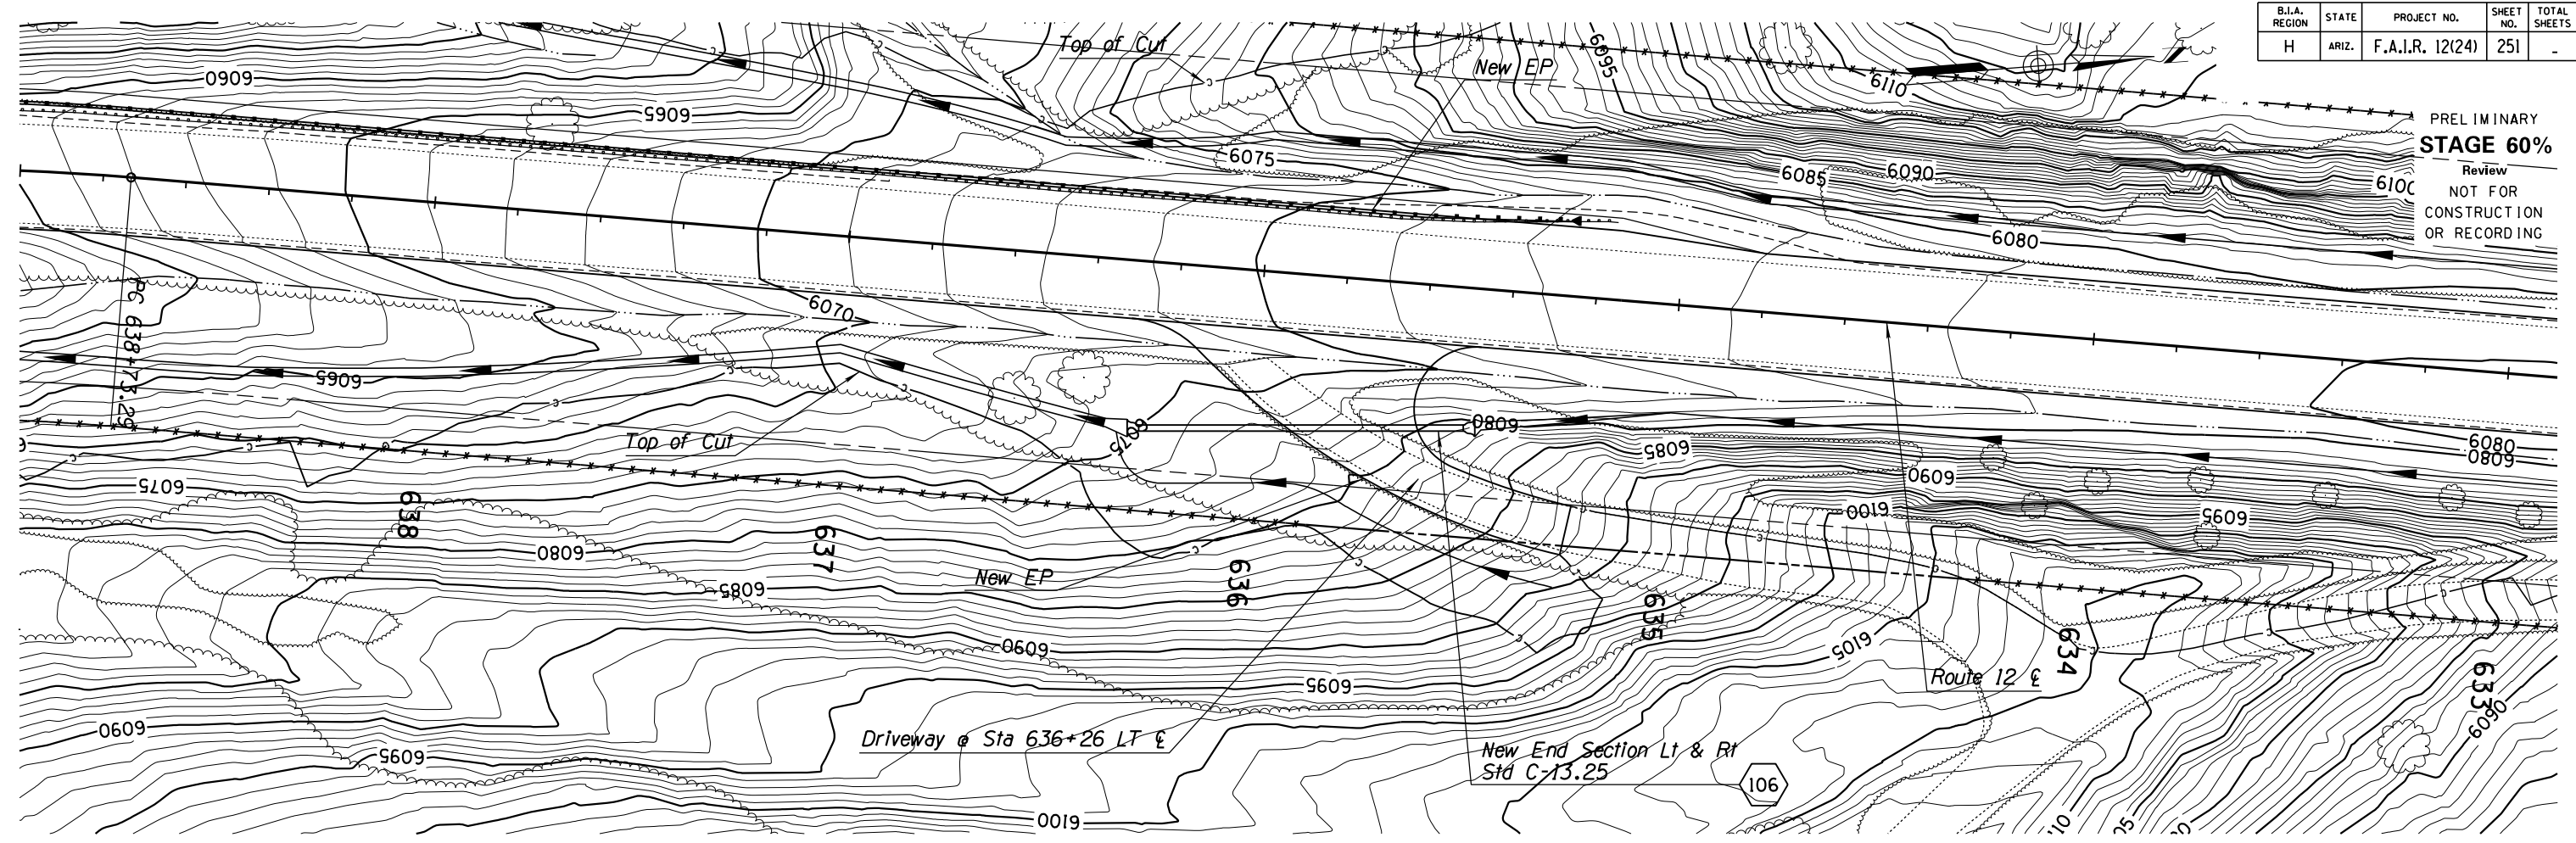 B.I.A. REGION STATE PROJECT NO. SHEET NO. TOTAL SHEETS
H ARIZ. F.A.I.R. 12(24) 251 -
PRELIMINARY
STAGE 60%
Review
NOT FOR
CONSTRUCTION
OR RECORDING
Top of Cut
New EP
6095
6110
6060
6065
6075
6085
6090
6100
6080
PC 638+73.29
6070
6065
6075
6080
6085
6080
6080
Top of Cut
6075
638
6080
637
New EP
6085
636
635
634
633
6090
6100
6095
6090
6095
6105
Route 12 ℄
6090
6090
6095
Driveway @ Sta 636+26 LT ℄
New End Section Lt & Rt
Std C-13.25
106
6100